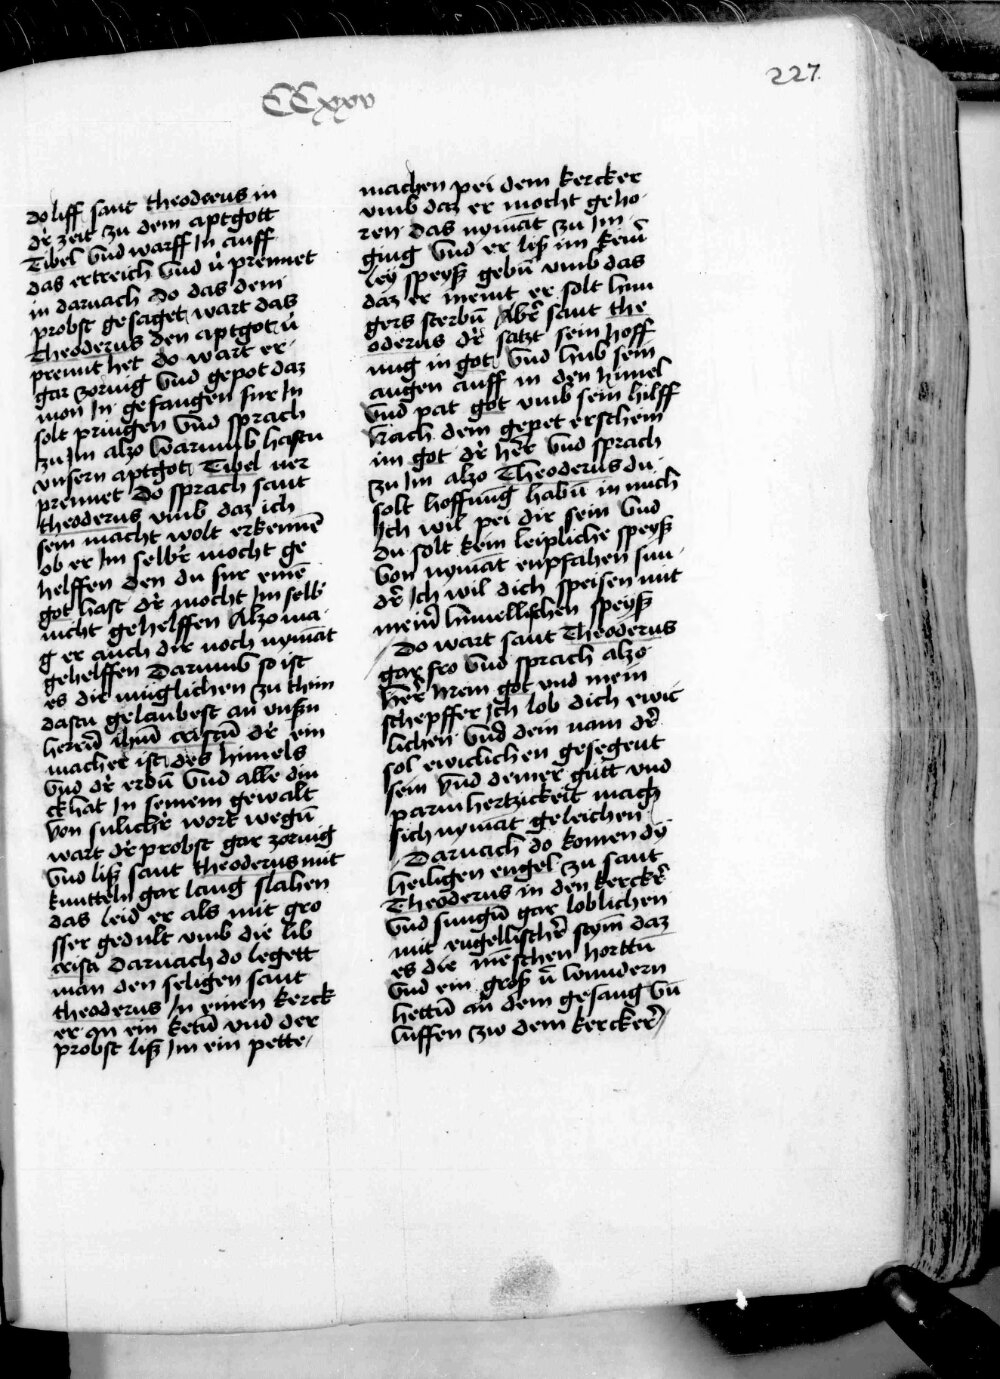 227
CCxxv
do liff sant theoderus in
dr̄ zeit zu dem aptgott
Tibel vnd warff In auff
das ertreich vnd v̄prennet
in darnach Do das dem
probst gesaget wart das
Theoderus den aptgot v̄
prennt het do wart er
gar zornig vnd gepot daz
mon In gefangen fur In
solt pringen vnd sprach
zu Im alzo warumb hastu
vnsern aptgot Tibel ver
prennet Do sprach sant
theoderus vmb daz ich
sein macht wolt erkennē
ob er Im selbr̄ mocht ge
helffen den du fur einē
got hast dr̄ mocht Im selb
nicht gehelffen Alzo ma
g er auch dir noch nymāt
gehelffen Darumb so ist
es dir müglichen zu thun
dastu gelaubest an vnsm̄
herrn̄ ihm̄ cristū dr̄ ein
macher ist des himels
vnd dr̄ erdn̄ vnd alle din
ck hat In seinem gewalt
Von sulichr̄ wort wegn̄
wart dr̄ probst gar zornig
vnd liß sant theoderus mit
knutteln gar lang slahen
das leid er als mit gro
sser gedult vmb die lib
cristi Darnach do legett
man den seligen sant
theoderus In einen kerck
er an ein ketn̄ vnd der
probst liß Im ein pette
machen pei dem kercker
vmb daz er mocht geho
ren das nymāt zu Im
ging vnd er liß im keinr̄
ley speyß gebn̄ vmb das
daz er meint er solt hun
gers sterbn̄ Abr̄ sant the
oderus dr̄ satzt sein hoff
nug in got vnd hub sein
augen auff in den himel
vnd pat got vmb sein hilff
Nach dem gepet erschein
im got dr̄ her̄ vnd sprach
zu Im alzo Theoderus du
solt hoffnūg habn̄ in mich
Ich wil pei dir sein vnd
du solt kein leipliche speyß
von nymāt enpfahen sun
dr̄ Ich wil dich speisen mit
meinr̄ himellischen speyß
Do wart sant Theoderus
gar fro vnd sprach alzo
her̄ mein got vnd mein
schepffer Ich lob dich ewic
lichen vnd dein nam dr̄
sol ewiclichen gesegent
sein vnd deiner gütt vnd
parmhertzickeit mag
sich nymāt geleichen
Darnach do komen dy
heiligen engel zu sant
Theoderus in den kerckr̄
vnd sungn̄ gar loblichen
mit engellischr̄ stym̄ daz
es die mēschen horttn̄
vnd ein groß v̄wundern
hettn̄ an dem gesang vn̄
luffen zw dem kercker